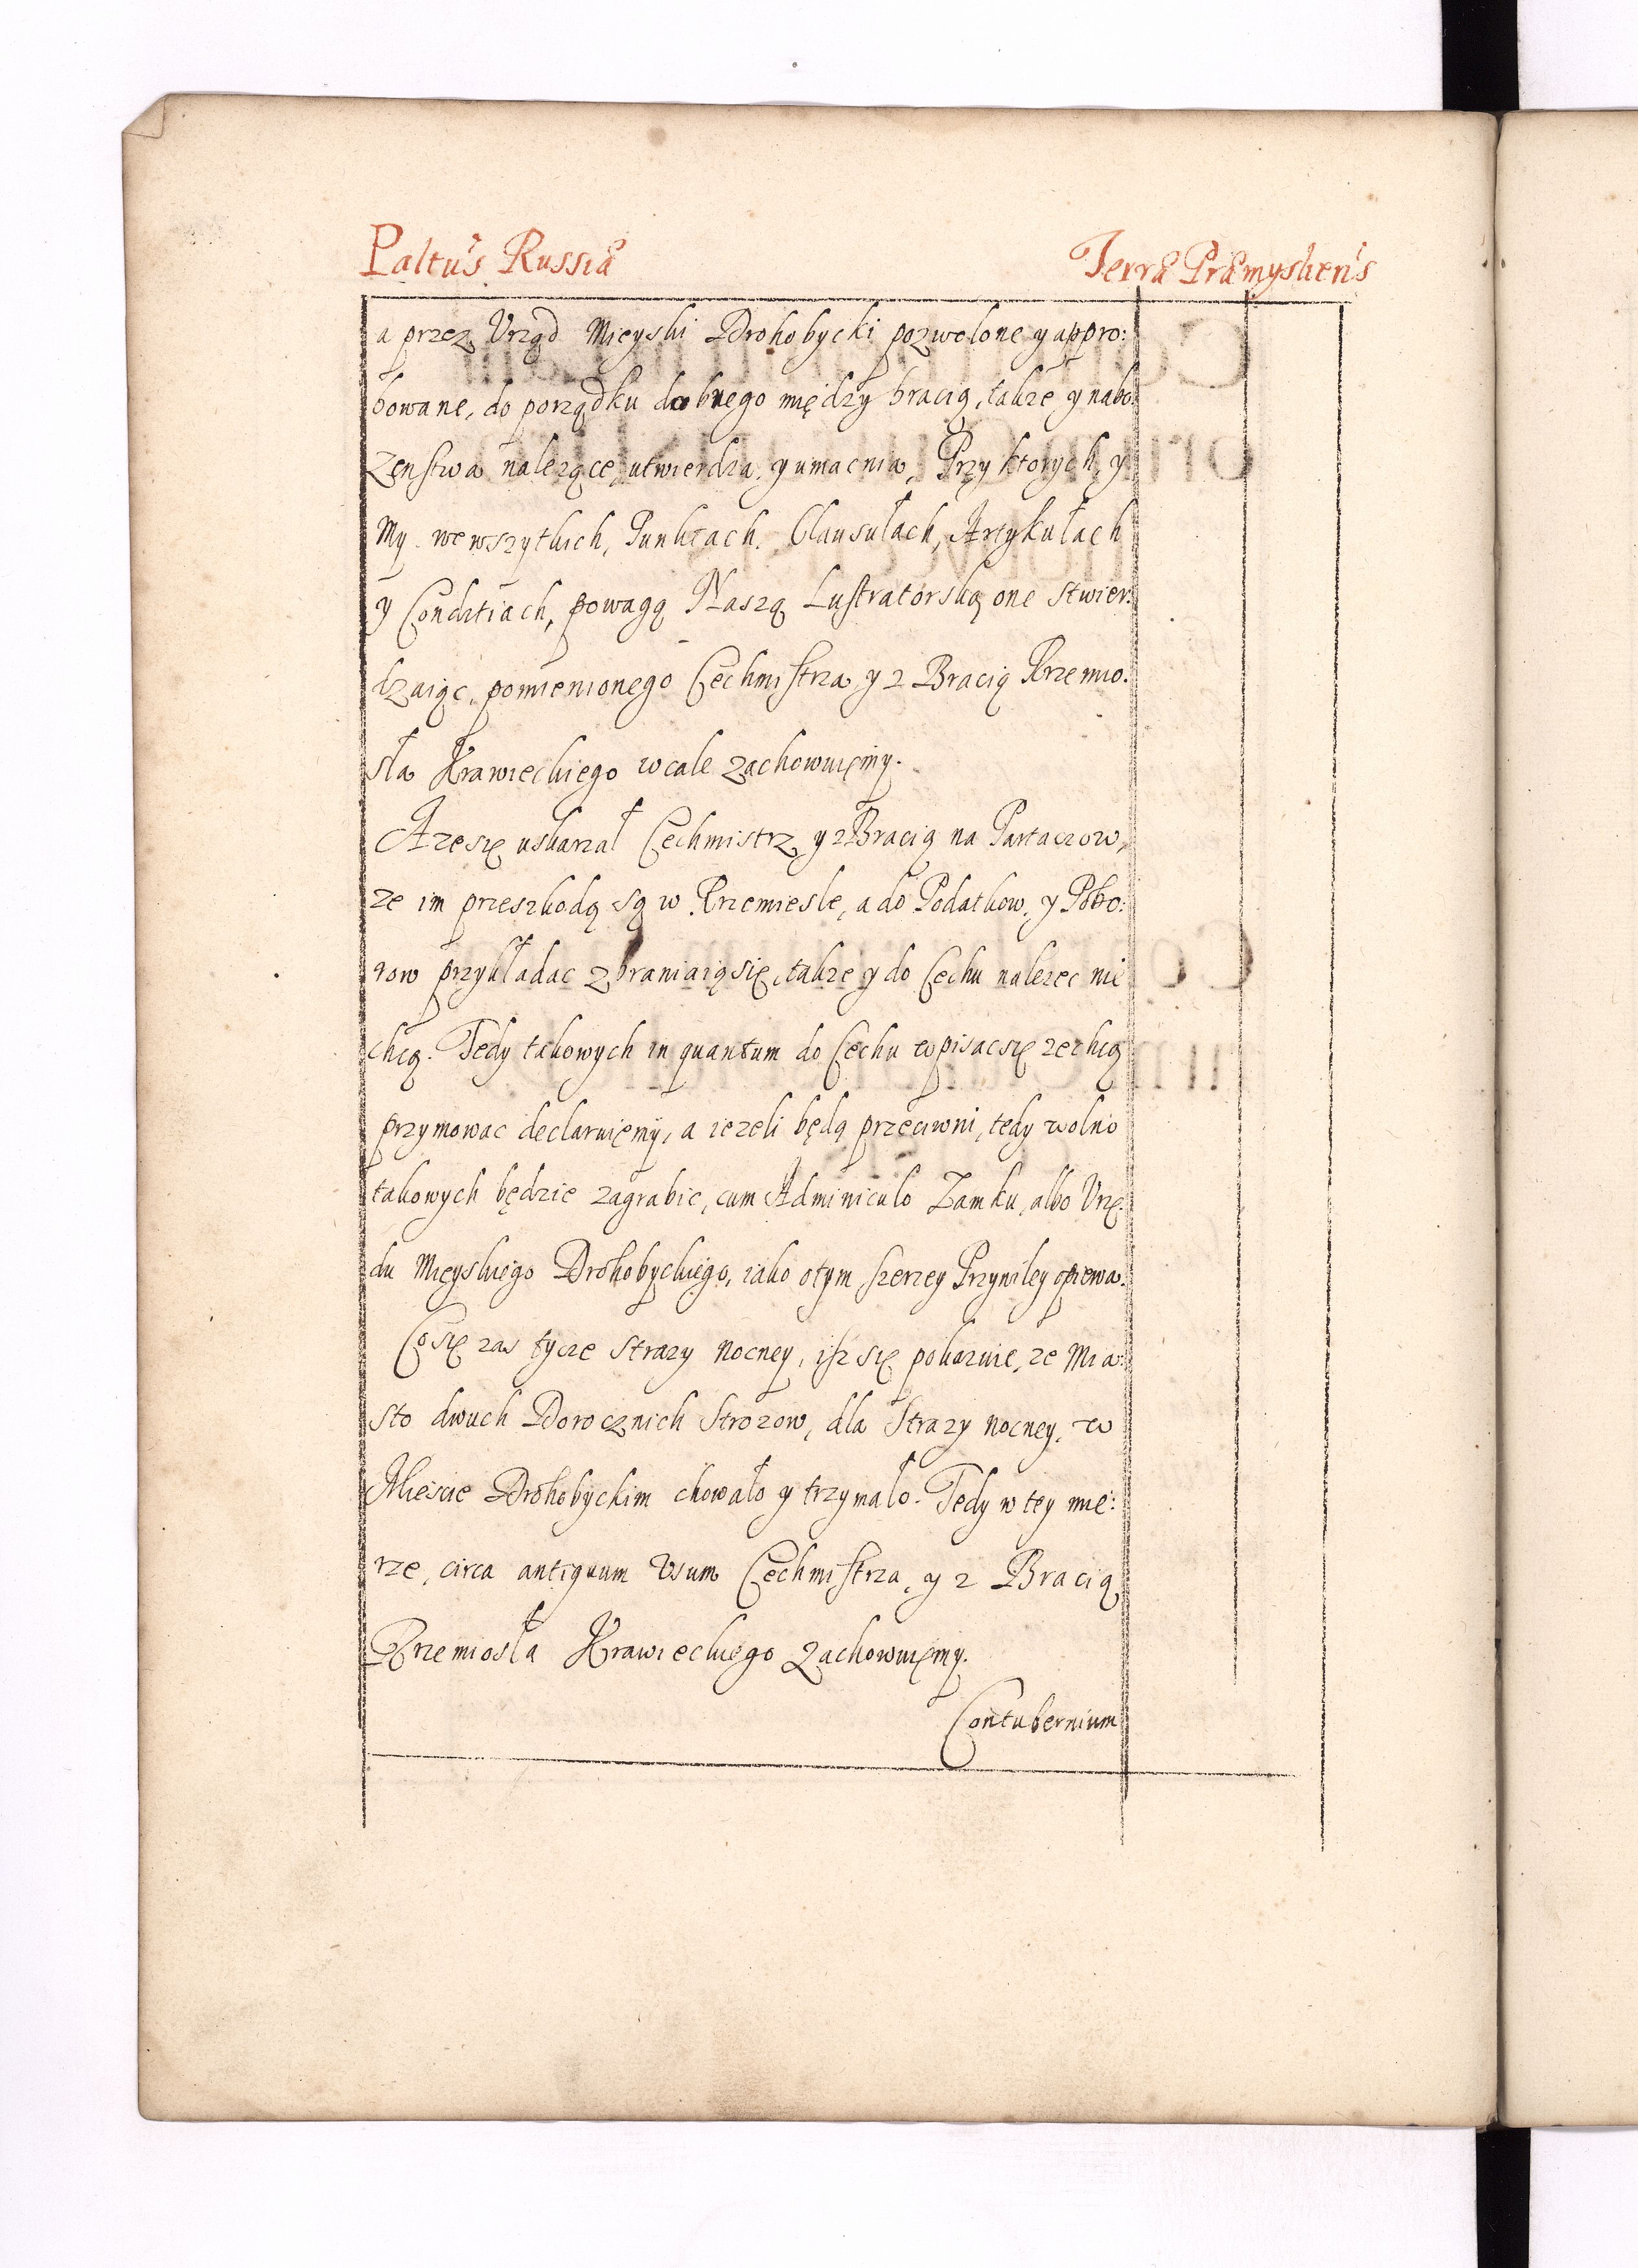 Paltus Russiæ
Terræ Præmysliens
a przez Vrząd Mieyski Drohobycki pozwolone y appro:
bowane, do porządku dobrego między bracią, takze y nabo
zenstwa nalezące, utwierdza, y umacnia, Przy ktorych, y
My we wszytkich, Punktach, Clausułach, Artykułach
y Conditiach, powagą Naszą Lustratorską one stwier:
dzaiąc, pomienionego Cechmistrza y z Bracią Rzemio:
sła Krawieckiego wcale zachowuięmy.
A ze się uskarzał Cechmistrz y z Bracią na Partaczow,
ze im przeszkodą są w Rzemiesle, a do Podatkow, y Pobo:
row przykładac zbraniaią się, takze y do Cechu nalezec nie
chcą. Tedy takowych in quantum do Cechu wpisac się zechcą
przymowac declaruięmy, a iezeli będą przeciwni, tedy wolno
takowych będzie zagrabic, cum Adminiculo Zamku, albo Vrzę:
du Mieyskiego Drohobyckiego, iako otym szerzey Przywiley opiewa.
Co się zas tycze strazy Nocney, isz się pokazuie, ze Mia:
sto dwuch Dorocznich Strozow, dla Strazy Nocney, w
Miescie Drohobyckim chowało y trzymało. Tedy w tey mie:
rze, circa antiquum Vsum Cechmistrza, y z Bracią
Rzemiosła Krawieckiego zachowuięmy.
Contubernium